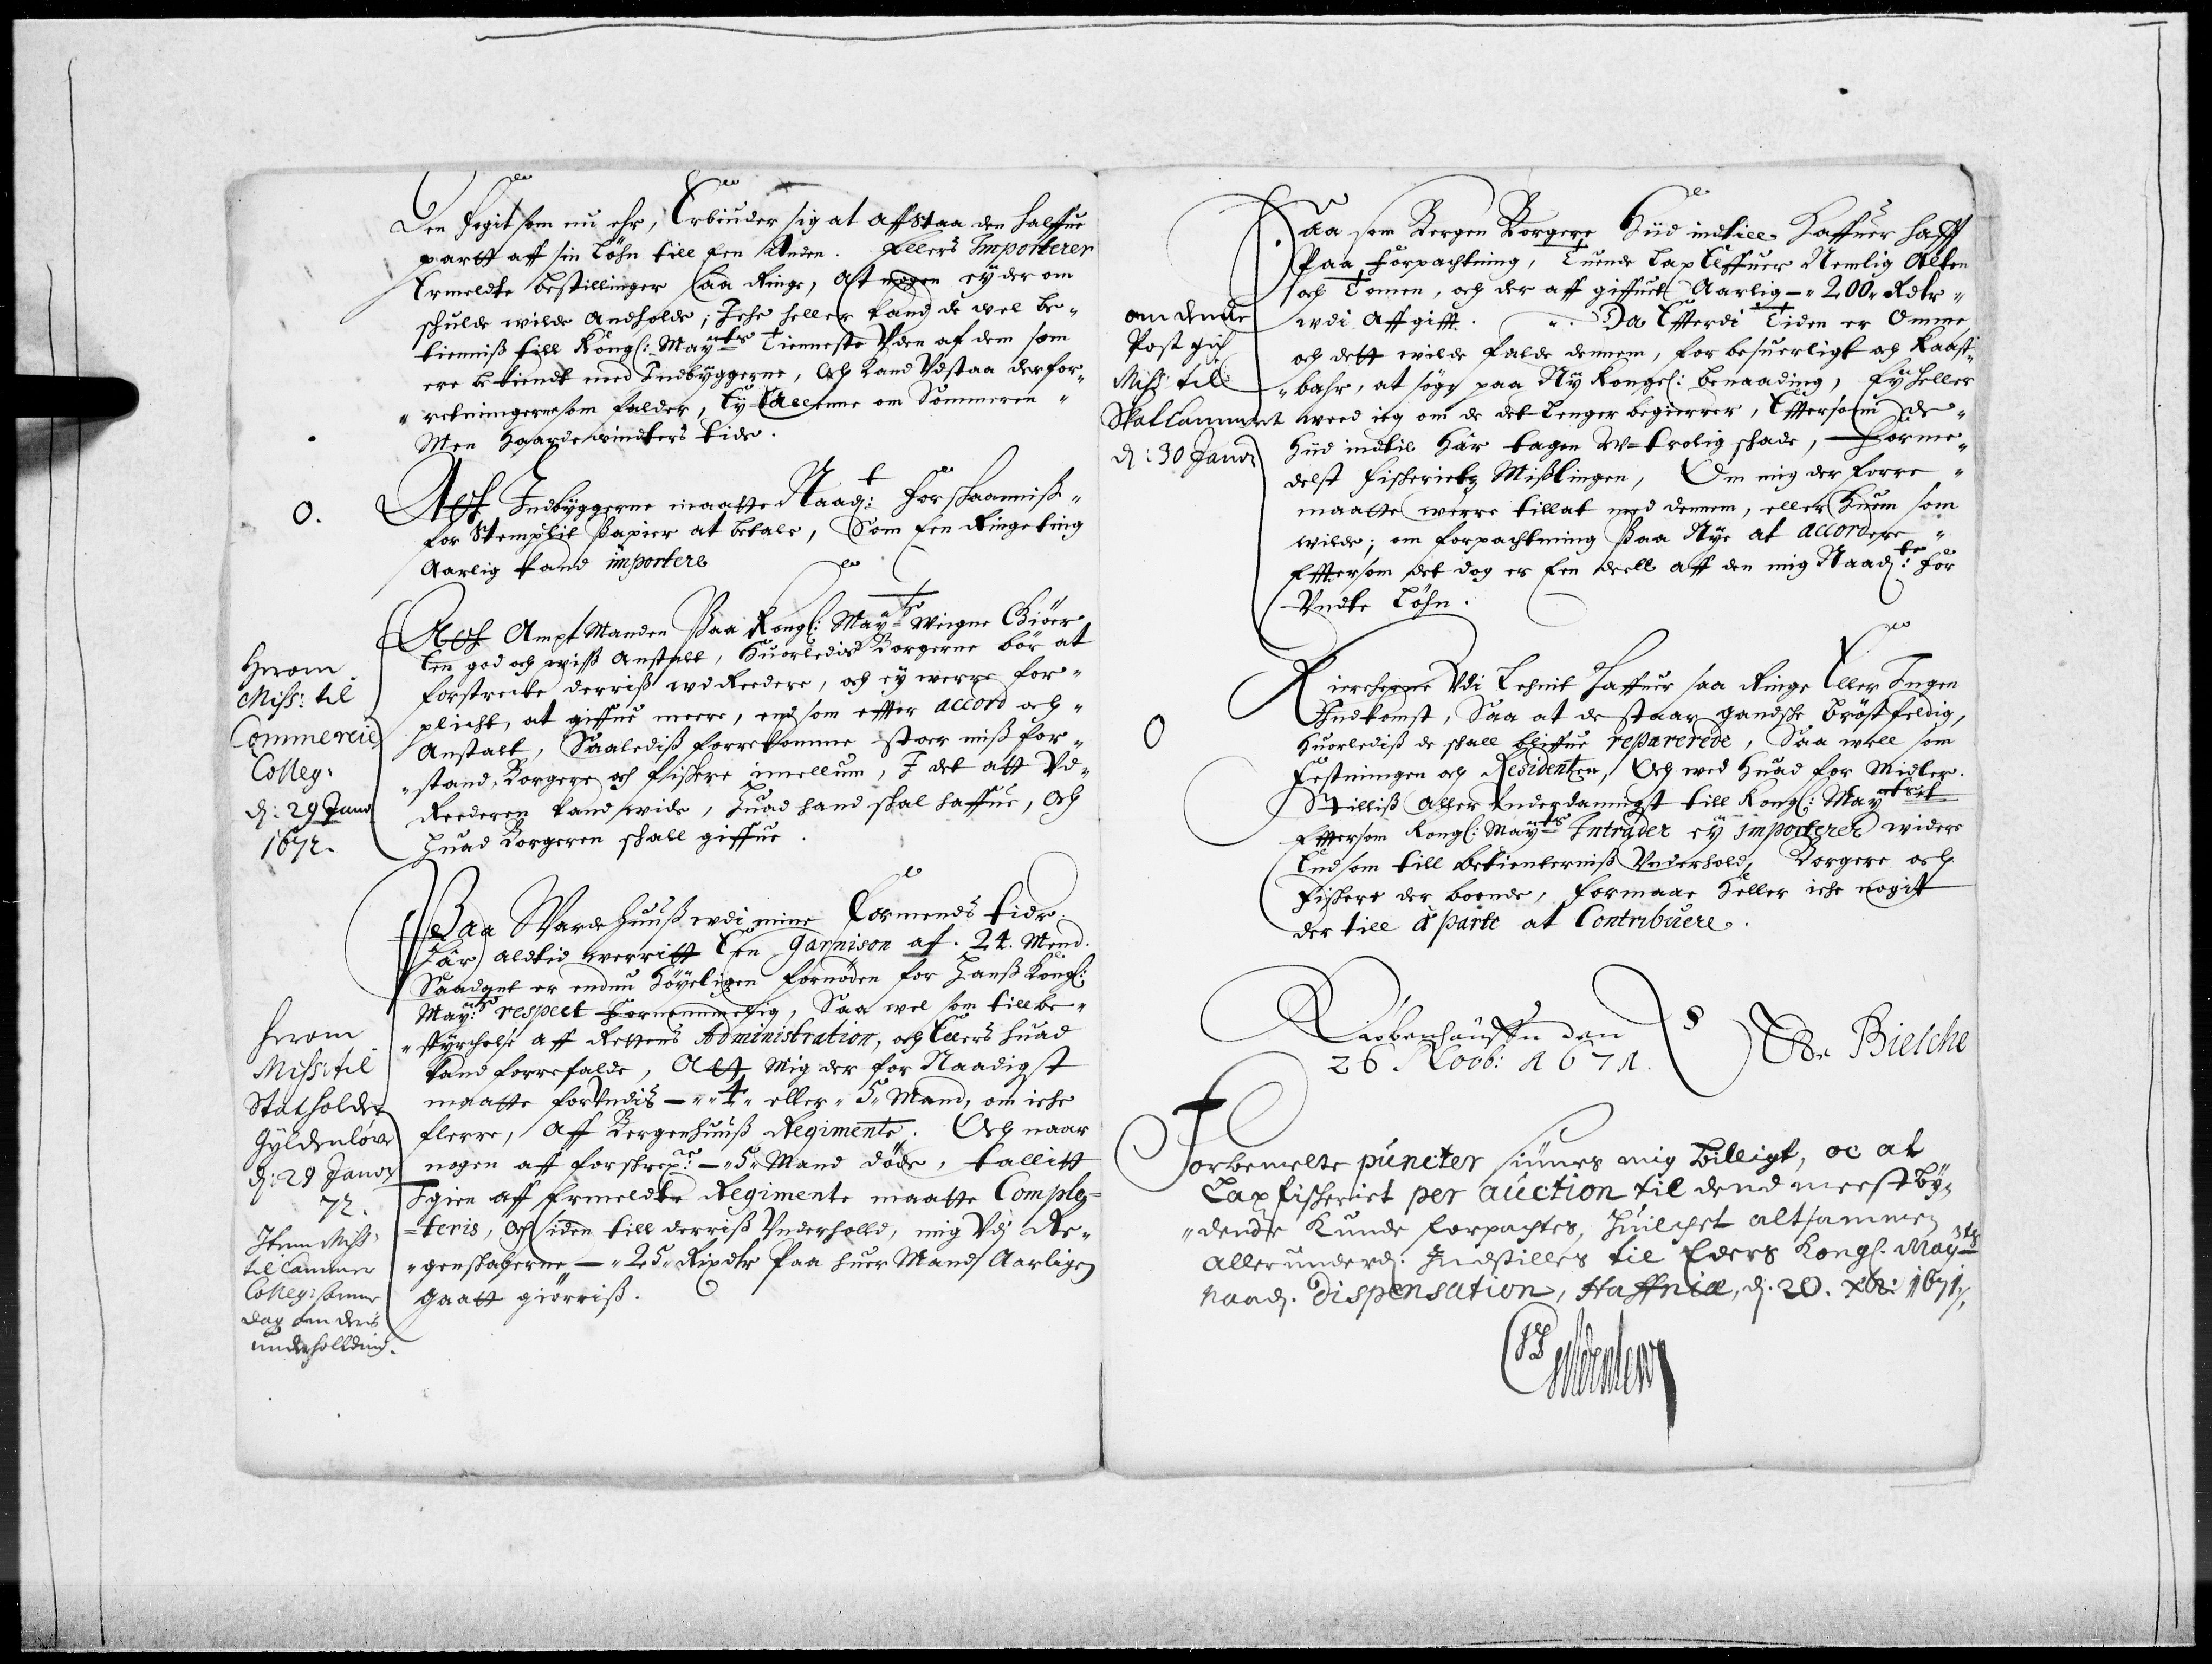 Den fogit som nu ehr, Erbiuder sig at affstaa den halffue
partt aff sin Löhn till Een Anden. Ellers Importerer
Ermeldte bestillinger saa Ringe, Att nogen ey der om
schulde wilde Andholde; Iche heller kand de vel be„
tienniß till Kongl: Mayts Tienneste Uden af dem som
ere bekiendt med Indbyggerne, Och kand Udstaa der for„
„retningerne som falder, Ey Alleenne om Sommeren„
Men Haarde windters tide.
O.
Att Indbyggerne maatte Naad: forskaanniß„
for Stemplit Papier at betale, Som Een Ringe ting
Aarlig kand importere
Herom
Miss: til
Commercie
Colleg:
d: 29 Janv
1672.
Att Ampt Manden Paa Kongl: Mayts weigne Giör
Een god och wiß Anstalt, Huorledis Borgerne bör at
forstrecke derriß udReedere, och ey werre for„
plicht, at giffue meere, end som effter accord och„
Anstalt, Saalediß forrekomme stoer miß for„
„stand, Borgere och fiskere imellum, I det att Ud„
Reederen kand wide, Huad hand skal haffue, Och
Huad Borgeren skall giffue.
Paa WardeHuuß udi mine formends tide
Har altid werritt Een Garnison af. 24. Mend.
Saadant er endnu Höyeligen fornöden for Hanß Kongl:
Mayts: respect fornemmelig, Saa wel som till be„
„styrchelse aff Rettens Administration, och Ellers huad
kand forrefalde, Att Mig der for Naadigst
maatte forUndis —„4„ eller „5„ Mand, om iche
flerre, Aff Bergenhuuß Regimente. Och naar
nogen aff forskrefne: —„5„ Mand döde, tallitt
Igien aff Ermeldte Regimente maatte Comple„
„teris, Och siden till derriß Underholld, mig Udj Re„
„genskaberne —„25„ Rixdlr Paa huer Mand Aarligen
gaatt giörriß.
Herom
Miss: til
Statholder
Gyldenlöve
d: 29 Janv
72.
Item Miss:
til Cammer
Colleg: samme
dag om deris
underholding.
Saa som Bergen Borgere Hiid indtill Haffuer hafft
Paa forpachtning, Tuende Lax Elffuer Nemlig Alten
och Tanen, och der aff giffuet Aarlig —„200„ Rdlr„
udi Affgifft. „. Da Effterdi Tiden er Omme,
och dett wilde falde dennem, for besuerligt och Kaast„
„bahr, at söge paa Ny Kongel: benaading, Ey heller
weed ieg om de det Lenger begierrer, Effter som de„
Hiid indtil Har tagen U=trolig skade, forme„
delst Fiskeriets Mißlingen, Om mig der forre„
maatte werre tillat med dennem, eller Huem som
wilde; om forpachtning Paa Nye at accordere„
Effter som det dog er Een deell aff den mig Naad: for
Undte Löhn.
om dend
Post gich
Miss: til
Skatcammeret
d: 30 Janv
O
Kiercherne Udi Lehnit Haffuer saa Ringe Eller Ingen
Indkomst, Saa at de staar gandsche Bröstfeldig,
Huorlediß de skall bliffue reparerede, Saa well som
Festningen och Residentzen, Och wed Huad for Midler.
Stilliß Aller Underdanigst till Kongl: Maytet
Effter som Kongl: Mayts Intrader ey importerer widere
End som till betienterniß Underhold, Borgere och
Fiskere der boende, formaar Heller iche nogit
der till à parte at Contribuere.
Kiöbenhaffn den
26 Novb: 1671.
Bielche
Forbemelte puncter siunes mig billigt, oc at
Laxfischeriet per auction til dend meestby„
„dende kunde forpachtes, Huilchet altsammen
allerunderd. Indstilles til Eders Kongl. Mayts
Naad. Dispensation, Haffniæ, d. 20. xbr: 1671.
Gyldenlew